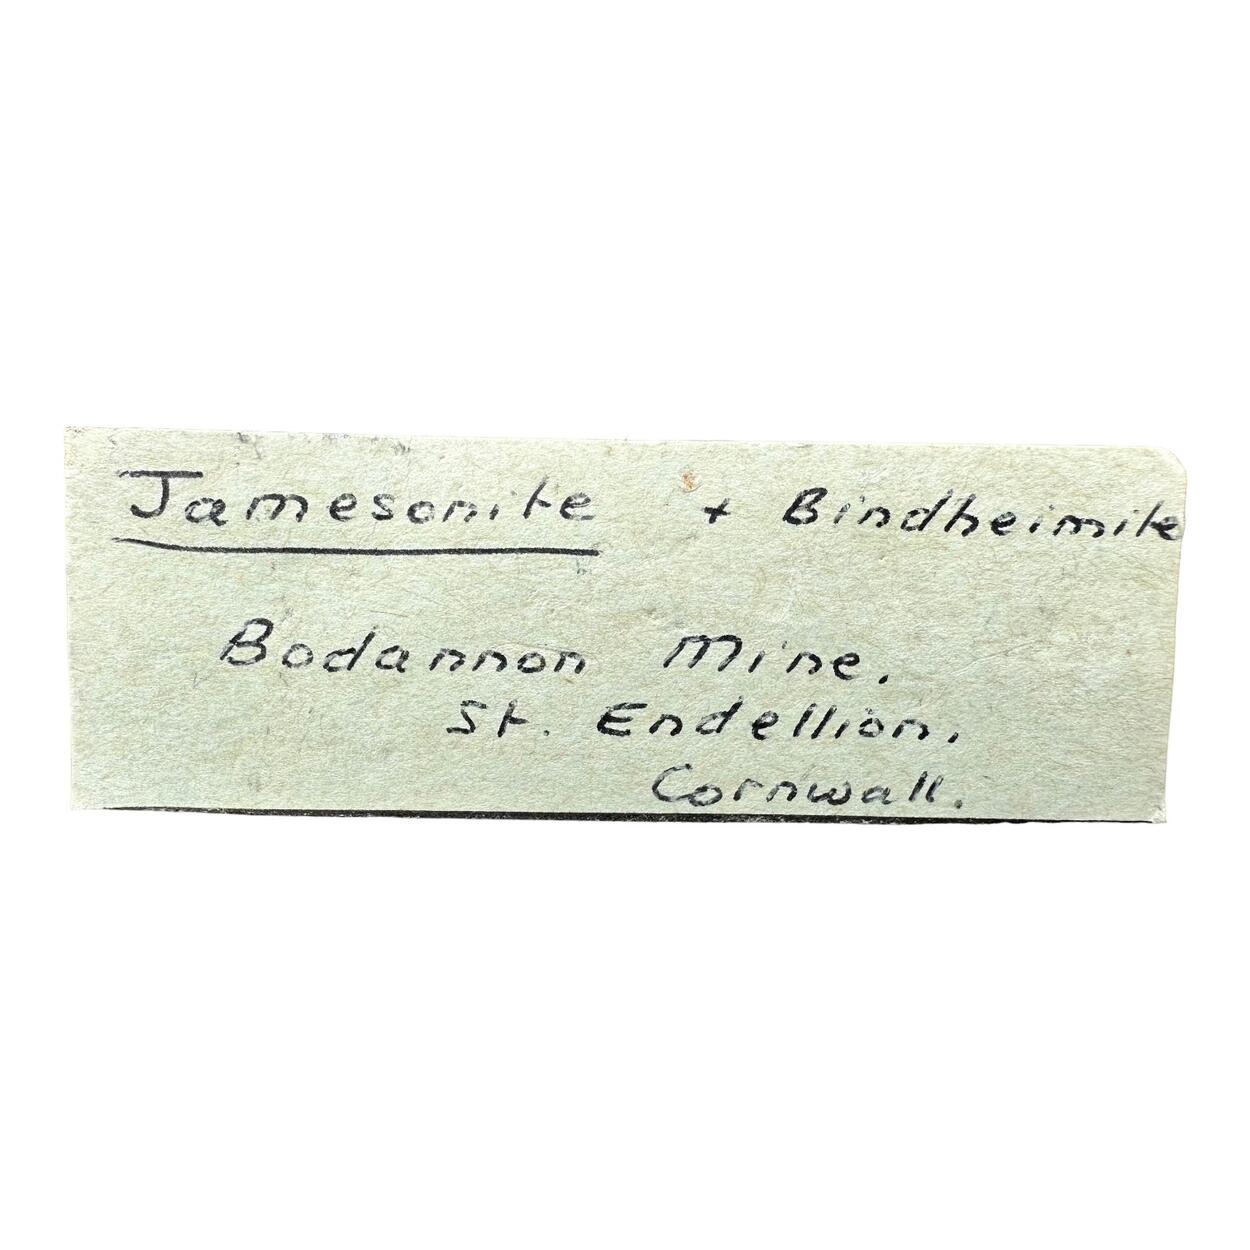 Jamesonite + Bindheimite
Bodannon Mine.
St. Endellion.
Cornwall.